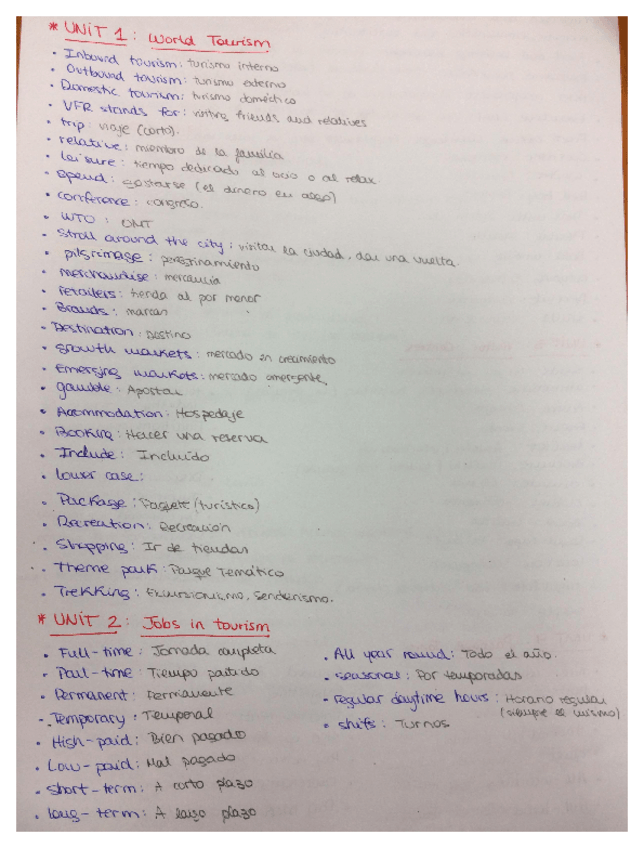 * UNIT 1: World Tourism
• Inbound tourism: turismo interno
• Outbound tourism: turismo externo
• Domestic tourism: turismo doméstico
• VFR stands for: visiting friends and relatives
• trip: viaje (corto).
• relative: miembro de la familia
• leisure: tiempo dedicado al ocio o al relax
• spend: gastarse (el dinero en algo)
• conference: congreso.
• WTO: OMT
• Stroll around the city: visitar la ciudad, dar una vuelta.
• pilgrimage: peregrinamiento
• merchandise: mercancía
• retailers: tienda al por menor
• Brands: marcas
• Destination: Destino
• growth markets: mercado en crecimiento
• Emerging markets: mercado emergente,
• gamble: Apostar
• Accommodation: Hospedaje
• Booking: Hacer una reserva
• Include: Incluido
• lower case:
• Package: Paquete (turístico)
• Recreation: Recreación
• Shopping: Ir de tiendas
• Theme park: Parque Temático
• Trekking: Excursionismo, Senderismo.
* UNIT 2: Jobs in tourism
• Full-time: Jornada completa
• Part-time: Tiempo partido
• Permanent: Permanente
• Temporary: Temporal
• High-paid: Bien pagado
• Low-paid: Mal pagado
• short-term: A corto plazo
• long-term: A largo plazo
• All year round: Todo el año.
• seasonal: Por temporadas
• regular daytime hours: Horario regular
(siempre el mismo)
• shifts: Turnos